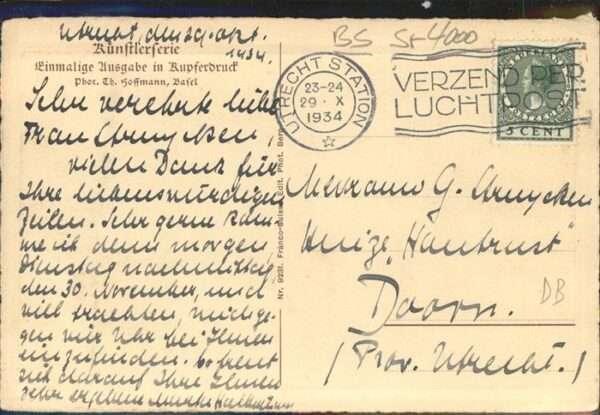 Utrecht, den 29. Okt.
1934.
Künstlerserie
Einmalige Ausgabe in Kupferdruck
Phot. Th. Hoffmann, Basel
Sehr verehrte liebe
Frau
vielen Dank für
Ihre liebenswürdigen
Zeilen. Sehr gerne kom
me ich denn morgen
Dienstag nachmittag
den 30. November, und
will trachten, mich ge-
gen vier Uhr bei Ihnen
einzufinden. Es freut
sich darauf Ihre Ihnen
sehr ergebene
Nr. 9291. Franco-Suisse, Edit. Phot. Bern
BS St 4000
UTRECHT STATION
23-24
29 · X
1934
VERZEND PER
LUCHTPOST
5 CENT
G.
Huize „Hautrust"
Doorn.
(Prov. Utrecht.)
DB